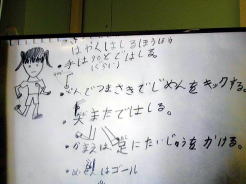 はやくはしるほうほう
・手は90どではしる。
(ぐらい)
でつまさきでじめんをキックする。
・大またではしる。
・かまえは足にたいじゅうをかける。
はゴール